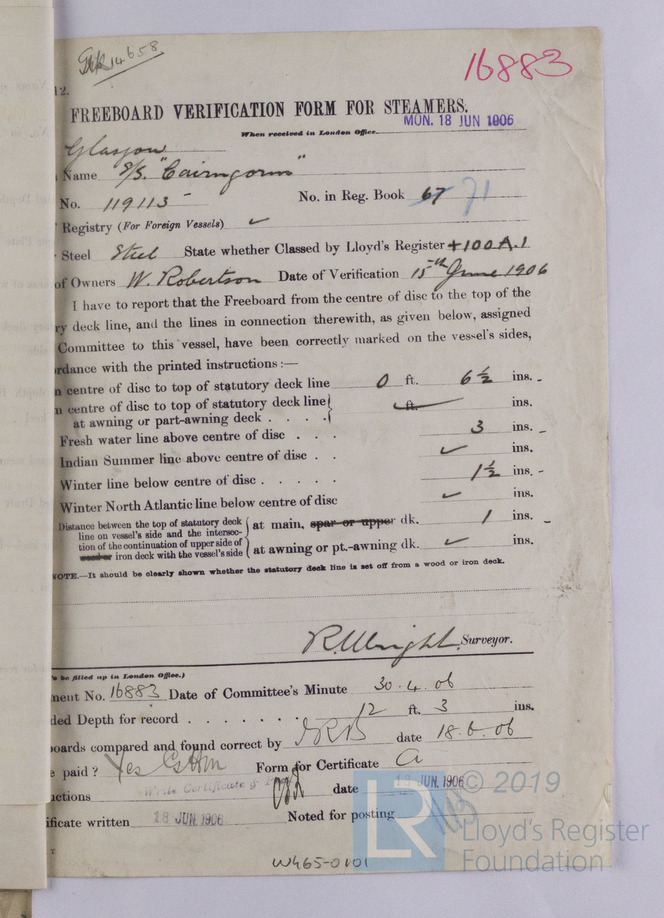 14658
16883
12.
FREEBOARD VERIFICATION FORM FOR STEAMERS.
When received in London Office MON. 18 JUN 1906
Glasgow
Name S/S. "Cairngorm"
No. 119113 No. in Reg. Book 67 71
Registry (For Foreign Vessels) ✓
Steel Steel State whether Classed by Lloyd's Register +100A.1
of Owners W. Robertson Date of Verification 15th June 1906
I have to report that the Freeboard from the centre of disc to the top of the
ry deck line, and the lines in connection therewith, as given below, assigned
Committee to this vessel, have been correctly marked on the vessel's sides,
ordance with the printed instructions:—
n centre of disc to top of statutory deck line 0 ft. 6½ ins.
n centre of disc to top of statutory deck line ft. ins.
at awning or part-awning deck . . . .
Fresh water line above centre of disc . . . 3 ins.
Indian Summer line above centre of disc . . ✓ ins.
Winter line below centre of disc . . . . . 1½ ins.
Winter North Atlantic line below centre of disc ✓ ins.
Distance between the top of statutory deck
line on vessel's side and the intersec- at main, spar or upper dk. 1 ins.
tion of the continuation of upper side of
iron deck with the vessel's side at awning or pt.-awning dk. ✓ ins.
NOTE.—It should be clearly shown whether the statutory deck line is set off from a wood or iron deck.
R. Wright. Surveyor.
o be filled up in London Office.)
ment No. 16883 Date of Committee's Minute 30.4.06
ded Depth for record . . . . . . . 12 ft. 3 ins.
boards compared and found correct by date 18.6.06
e paid? Yes Form for Certificate A
Write Certificate &
ctions date 18 JUN. 1906
ificate written 18 JUN 1906 Noted for posting
W465-0101
© 2019
LR
Lloyd's Register
Foundation